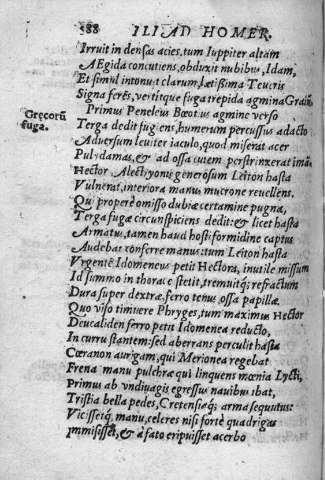 588 ILIAD HOMER.
Irruit in densas acies, tum Iuppiter altam
AEgida concutiens, obduxit nubibus, Idam,
Et simul intonuit clarum, lætißima Teucris
Signa ferēs, vertitque fuga trepida agmina Graiūm
Primus Peneleus Bœotus agmine verso
Grecorū
fuga.
Terga dedit fugiens, humerum percussus adacto
Aduersum leuiter iaculo, quod miserat acer
Pulydamas, & ad ossa cutem perstrinxerat imā
Hector Alectryonis generosum Leiton hasta
Vulnerat, interiora manus mucrone reuellent.
Qui properè omisso dubiæ certamine pugnæ,
Terga fugæ circunspiciens dedit: & licet hasta
Armatus, tamen haud hosti formidine captus
Audebat conferre manus: tum Leiton hasta
Vrgentē Idomeneus petit Hectora, inutile missum
Id summo in thorace stetit, tremuitq; refractum
Dura super dextræ, ferro tenus ossa papillæ.
Quo viso timuere Phryges, tum maximus Hector
Deucaliden ferro petit Idomenea reducto,
In curru stantem: sed aberrans perculit hasta
Cœranon aurigam, qui Merionea regebat
Frena manu pulchræ qui linquens mœnia Lycti,
Primus ab vndiuagis egressus nauibus ibat,
Tristia bella pedes, Cretensiaq; arma sequutus:
Vicissetq; manu, celeres nisi fortè quadrigas
Immisisset, & à fato eripuisset acerbo